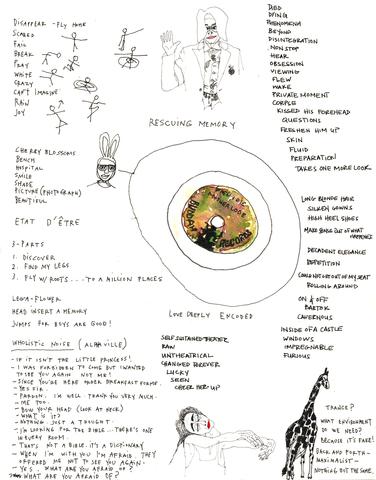 DISAPPEAR - FLY HOME
SCARED
FAIL
BREAK
PLAY
WHITE
CRAZY
CAN'T IMAGINE
RAIN
JOY
DIED
DYING
PHENOMENA
BEYOND
DISINTEGRATION
NON STOP
HEAR
OBSESSION
VIEWING
FLEW
WAKE
PRIVATE MOMENT
CORPLE
KISSED HIS FOREHEAD
QUESTIONS
FRESHEN HIM UP
SKIN
FLUID
PREPARATION
TAKES ONE MORE LOOK
RESCUING MEMORY
CHERRY BLOSSOMS
BENCH
HOSPITAL
SMILE
SHADE
PICTURE (PHOTOGRAPH)
BEAUTIFUL
ETAT D'ÊTRE
3-PARTS
1. DISCOVER
2. FIND MY LEGS
3. FLY W/ ROOTS....TO A MILLION PLACES
FLOWER
HEAD INSERT A MEMORY
JUMPS FOR BOYS ARE GOOD!
RECORD
LONG BLONDE HAIR
SILKEN GOWNS
HIGH HEEL SHOES
MAKE SENSE OUT OF WHAT
HAPPENED
DECADENT ELEGANCE
REPETITION
COULD NOT GET OUT OF MY SEAT
ROLLING AROUND
ON & OFF
BARTOK
CAVERNOUS
INSIDE OF A CASTLE
WINDOWS
IMPREGNABLE
FURIOUS
LOVE DEEPLY ENCODED
SELF SUSTAINED THEATER
RAW
UNTHEATRICAL
CHANGED FOREVER
LUCKY
SEEN
CHEER HER UP
WHOLISTIC NOISE (ALPHAVILLE)
- IF IT ISN'T THE LITTLE PRINCESS!
- I WAS FORBIDDEN TO COME BUT I WANTED
TO SEE YOU AGAIN. NOT ME!
- SINCE YOU'RE HERE ORDER BREAKFAST FOR ME.
- YES SIR.
- PARDON. I'M WELL THANK YOU VERY MUCH.
- ME TOO.
- BOW YOUR HEAD (LOOK AT NECK)
- WHAT IS IT?
- NOTHING JUST A THOUGHT.
- I'M LOOKING FOR THE BIBLE... THERE'S ONE
IN EVERY ROOM.
- THAT'S NOT A BIBLE. IT'S A DICTIONARY
- WHEN I'M WITH YOU I'M AFRAID. THEY
OFFERED ME NOT TO SEE YOU AGAIN.
- YES.. WHAT ARE YOU AFRAID OF?
- WHAT ARE YOU AFRAID OF?
TRANCE?
WHAT ENVIRONMENT
DO WE NEED?
BECAUSE IT'S RARE!
BACK AND FORTH-
MAXIMALIST-
NOTHING BUT THE SAME.